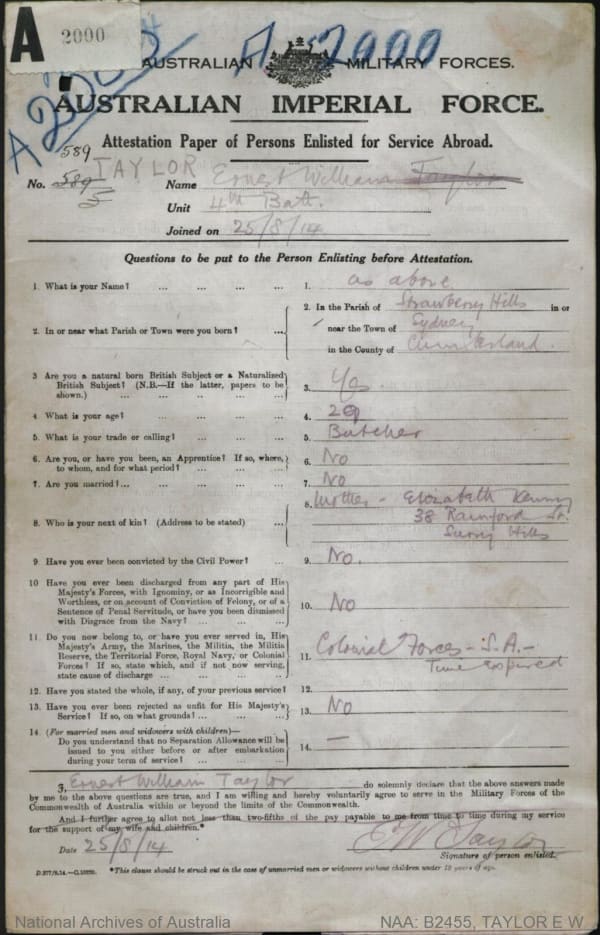 A 2000
A 2000
AUSTRALIAN MILITARY FORCES.
AUSTRALIAN IMPERIAL FORCE.
Attestation Paper of Persons Enlisted for Service Abroad.
589
No. 589 TAYLOR Name Ernest William Taylor
5
Unit 4th Batt.
Joined on 25/8/14
Questions to be put to the Person Enlisting before Attestation.
1. What is your Name? ... ... ... ... 1. as above
2. In or near what Parish or Town were you born? ... 2. In the Parish of Strawberry Hills in or
near the Town of Sydney
in the County of Cumberland.
3 Are you a natural born British Subject or a Naturalized
British Subject? (N.B.—If the latter, papers to be
shown.) ... ... ... ... ... 3. Yes.
4. What is your age? ... ... ... ... 4.
5. What is your trade or calling? ... ... ... 5. Butcher
6. Are you, or have you been, an Apprentice? If so, where,
to whom, and for what period? ... ... ... 6. No
7. Are you married?... ... ... ... ... 7. No
8. Who is your next of kin? (Address to be stated) ... 8. Mother - Elizabeth Kenny
38 Rainford St.
Surry Hills
9 Have you ever been convicted by the Civil Power? ... 9. No.
10 Have you ever been discharged from any part of His
Majesty's Forces, with Ignominy, or as Incorrigible and
Worthless, or on account of Conviction of Felony, or of a
Sentence of Penal Servitude, or have you been dismissed
with Disgrace from the Navy? ... ... ... 10. No
11. Do you now belong to, or have you ever served in, His
Majesty's Army, the Marines, the Militia, the Militia
Reserve, the Territorial Force, Royal Navy, or Colonial
Forces? If so, state which, and if not now serving,
state cause of discharge ... ... ... ... 11. Colonial Forces - S.A. -
Time expired
12. Have you stated the whole, if any, of your previous service? 12.
13. Have you ever been rejected as unfit for His Majesty's
Service? If so, on what grounds? ... ... ... 13. No
14. (For married men and widowers with children)—
Do you understand that no Separation Allowance will be
issued to you either before or after embarkation
during your term of service? ... ... ... 14. —
I, Ernest William Taylor do solemnly declare that the above answers made
by me to the above questions are true, and I am willing and hereby voluntarily agree to serve in the Military Forces of the
Commonwealth of Australia within or beyond the limits of the Commonwealth.
And I further agree to allot not less than two-fifths of the pay payable to me from time to time during my service
for the support of my wife and children.*
Date 25/8/14 E W Taylor
Signature of person enlisted.
*This clause should be struck out in the case of unmarried men or widowers without children under 18 years of age.
National Archives of Australia NAA: B2455, TAYLOR E W